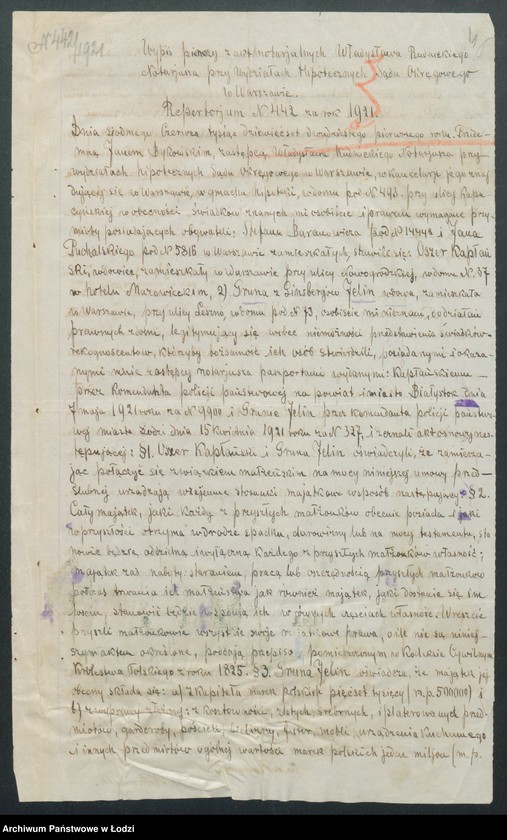 N 442/1921
Wypis pierwszy z akt notarjalnych Władysława Rudnickiego
Notarjusza przy Wydziałach Hipotecznych Sądu Okręgowego
w Warszawie.
Repertorjum N 442 za rok 1921.
Dnia siódmego Czerwca tysiąc dziewięćset dwudziestego pierwszego roku. Przede-
mną Janem Dykowskim, zastępcą Władysława Rudnickiego Notarjusza przy
wydziałach hipotecznych Sądu Okręgowego w Warszawie, w kancelarji jego znaj
dującej się w Warszawie, w gmachu hipoteki, w domu pod N 493. przy ulicy Kapu
cyńskiej w obecności świadków znanych mi osobiście i prawem wymagane przy-
mioty posiadających obywateli: Stefana Baranowicza pod N 1449a i Jana
Puchalskiego pod N 5816 w Warszawie zamieszkałych, stawili się: Uszer Kapłań
ski, wdowiec, zamieszkały w Warszawie przy ulicy Nowogrodzkiej, w domu N 37
w hotelu Mazowieckim, 2) Gruna z Ginsbergów Jelin wdowa, zamieszkała
w Warszawie, przy ulicy Leszno, w domu pod N 73, osobiście mi nieznani, do działań
prawnych zdolni, legitymujący się wobec niemożności przedstawienia świadków-
rekognoscentów, którzyby tożsamość ich osób stwierdzili, posiadanymi i okaza-
nymi mnie zastępcy notarjusza paszportami wydanymi: Kapłańskiemu
przez Komendanta policji państwowej na powiat i miasto Białystok dnia
7 maja 1921 roku za N 9900 i Grunie Jelin przez komendanta policji państwo
wej miasta Łodzi dnia 15 kwietnia 1921 roku za N 327, i zeznali akt osnowy nas-
tępującej: §1. Uszer Kapłański i Gruna Jelin oświadczyli, że zamierza-
jąc połączyć się związkiem małżeńskim na mocy niniejszej umowy przed-
ślubnej urządzają wzajemne stosunki majątkowe w sposób następujący: § 2.
Cały majątek, jaki każdy z przyszłych małżonków obecnie posiada i jaki
w przyszłości otrzyma w drodze spadku, darowizny lub na mocy testamentu, sta
nowić będzie oddzielną i wyłączną każdego z przyszłych małżonków własność;
majątek zaś nabyty staraniem, pracą lub oszczędnością przyszłych małżonków
podczas trwania ich małżeństwa jak również majątek, jaki dostanie się im
losem, stanowić będzie wspólną ich w równych częściach własność. Wreszcie
przyszli małżonkowie wszystkie swoje majątkowe prawa, o ile nie są niniej-
szym aktem określone, poddają przepisom pomieszczonym w Kodeksie Cywilnym
Królestwa Polskiego z roku 1825. § 3. Gruna Jelin oświadcza, że majątek jej
obecny składa się: a) z kapitału marek polskich pięćset tysięcy (m.p. 500.000) i
b) z wyprawy złożonej: z kosztowności, złotych, srebrnych, i platerowanych przed-
miotów, garderoby, pościeli, bielizny, futer, mebli, urządzenia kuchennego
i innych przedmiotów ogólnej wartości marek polskich jeden miljon (m.p.
Archiwum Państwowe w Łodzi